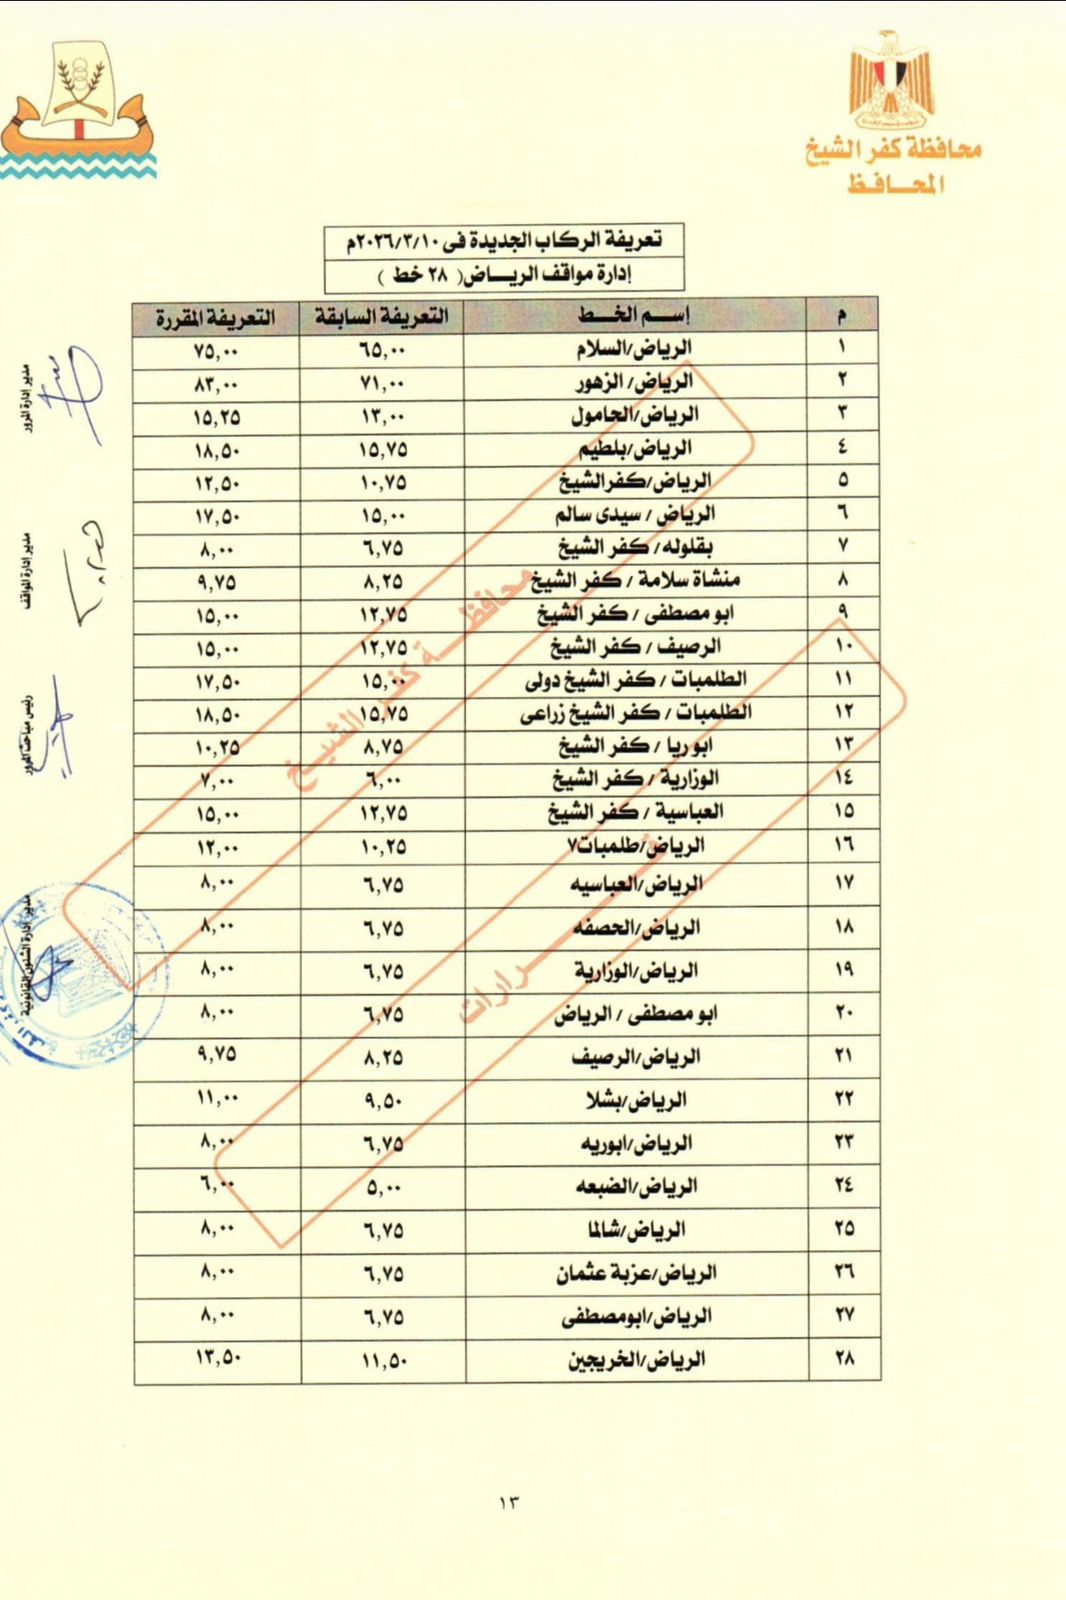 محافظة كفر الشيخ
المحافظ
تعريفة الركاب الجديدة فى ٢٠٢٦/٣/١٠م
إدارة مواقف الرياض( ٢٨ خط )
م إسم الخط التعريفة السابقة التعريفة المقررة
١ الرياض/السلام ٦٥,٠٠ ٧٥,٠٠
٢ الرياض/ الزهور ٧١,٠٠ ٨٣,٠٠
٣ الرياض/الحامول ١٣,٠٠ ١٥,٢٥
٤ الرياض/بلطيم ١٥,٧٥ ١٨,٥٠
٥ الرياض/كفرالشيخ ١٠,٧٥ ١٢,٥٠
٦ الرياض / سيدى سالم ١٥,٠٠ ١٧,٥٠
٧ بقلوله/ كفر الشيخ ٦,٧٥ ٨,٠٠
٨ منشاة سلامة / كفر الشيخ ٨,٢٥ ٩,٧٥
٩ ابو مصطفى / كفر الشيخ ١٢,٧٥ ١٥,٠٠
١٠ الرصيف / كفر الشيخ ١٢,٧٥ ١٥,٠٠
١١ الطلمبات / كفر الشيخ دولى ١٥,٠٠ ١٧,٥٠
١٢ الطلمبات / كفر الشيخ زراعى ١٥,٧٥ ١٨,٥٠
١٣ ابو ريا / كفر الشيخ ٨,٧٥ ١٠,٢٥
١٤ الوزارية / كفر الشيخ ٦,٠٠ ٧,٠٠
١٥ العباسية / كفر الشيخ ١٢,٧٥ ١٥,٠٠
١٦ الرياض/طلمبات٧ ١٠,٢٥ ١٢,٠٠
١٧ الرياض/العباسيه ٦,٧٥ ٨,٠٠
١٨ الرياض/الحصفه ٦,٧٥ ٨,٠٠
١٩ الرياض/الوزارية ٦,٧٥ ٨,٠٠
٢٠ ابو مصطفى / الرياض ٦,٧٥ ٨,٠٠
٢١ الرياض/الرصيف ٨,٢٥ ٩,٧٥
٢٢ الرياض/بشلا ٩,٥٠ ١١,٠٠
٢٣ الرياض/ابوريه ٦,٧٥ ٨,٠٠
٢٤ الرياض/الضبعه ٥,٠٠ ٦,٠٠
٢٥ الرياض/شالما ٦,٧٥ ٨,٠٠
٢٦ الرياض/عزبة عثمان ٦,٧٥ ٨,٠٠
٢٧ الرياض/ابومصطفى ٦,٧٥ ٨,٠٠
٢٨ الرياض/الخريجين ١١,٥٠ ١٣,٥٠
محافظة كفر الشيخ
قرارات
مدير إدارة المرور
مدير إدارة المواقف
رئيس مباحث المرور
مدير إدارة الشئون القانونية
١٣